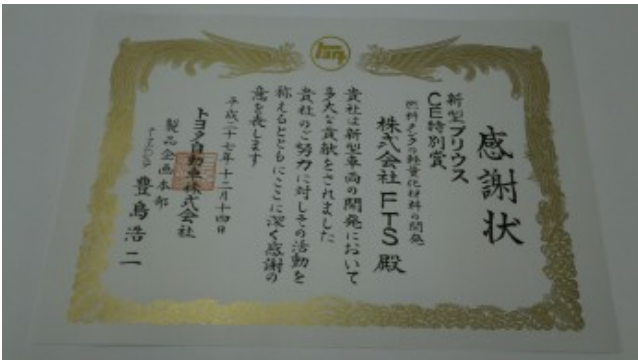 感謝状
新型プリウス
CE特別賞
燃料タンクの軽量化材料の開発
株式会社FTS殿
貴社は新型車両の開発において
多大な貢献をされました
貴社のご努力に対しその活動を
称えるとともにここに深く感謝の
意を表します
平成二十七年十二月十四日
トヨタ自動車株式会社
製品企画本部
豊島浩二